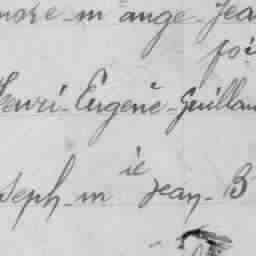 nore - m ange - Jea
foi
Henri - Eugène - Guillau
seph - m ie Jean - B